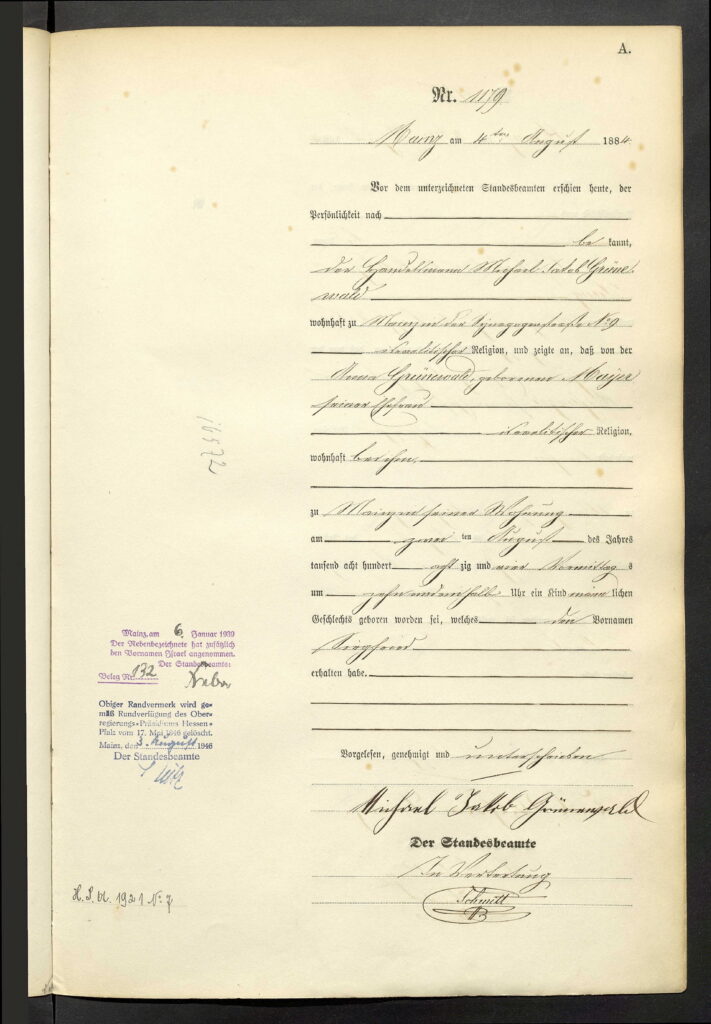 A.
Nr. 1179.
Mainz am 4ten August 1884.
Vor dem unterzeichneten Standesbeamten erschien heute, der
Persönlichkeit nach
be kannt,
der Handelsmann Michael Jakob Grüne
wald
wohnhaft zu Mainz in der Synagogenstraße No 9
israelitischer Religion, und zeigte an, daß von der
Anna Grünewald, geborenen Mayer
seiner Ehefrau
israelitischer Religion,
wohnhaft bei ihm,
zu Mainz in seiner Wohnung
am zwei ten August des Jahres
tausend acht hundert acht zig und vier Vormittag s
um zehn und einhalb Uhr ein Kind männ lichen
Geschlechts geboren worden sei, welches den Vornamen
Siegfried
erhalten habe.
Vorgelesen, genehmigt und unterschrieben
Michael Jakob Grünewald
Der Standesbeamte
In Vertretung
Schmitt
16572
Mainz, am 6. Januar 1939
Der Nebenbezeichnete hat zusätzlich
den Vornamen Israel angenommen.
Der Standesbeamte:
Beleg Nr. 132
Obiger Randvermerk wird ge-
mäß Rundverfügung des Ober-
regierungs-Präsidiums Hessen-
Pfalz vom 17. Mai 1946 gelöscht.
Mainz, den 3. August 1946
Der Standesbeamte
H. S. A. 1921 No 7